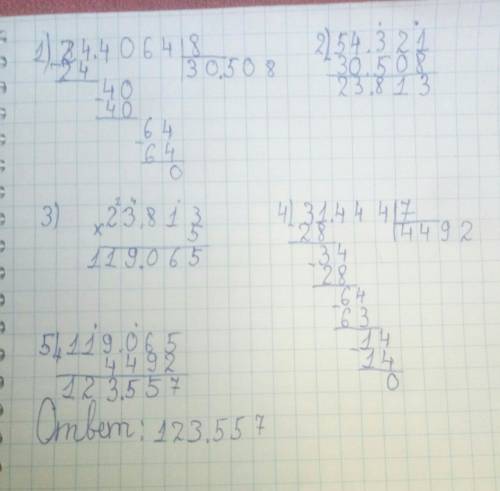 1) 24.4064|8
24 30.508
-40
40
-64
64
0
2) 54.321
30.508
23.813
3) ×23.813
5
119.065
4) 31.444|7
28 4492
-34
28
-64
63
-14
14
0
5) +119.065
4492
123.557
Ответ: 123.557